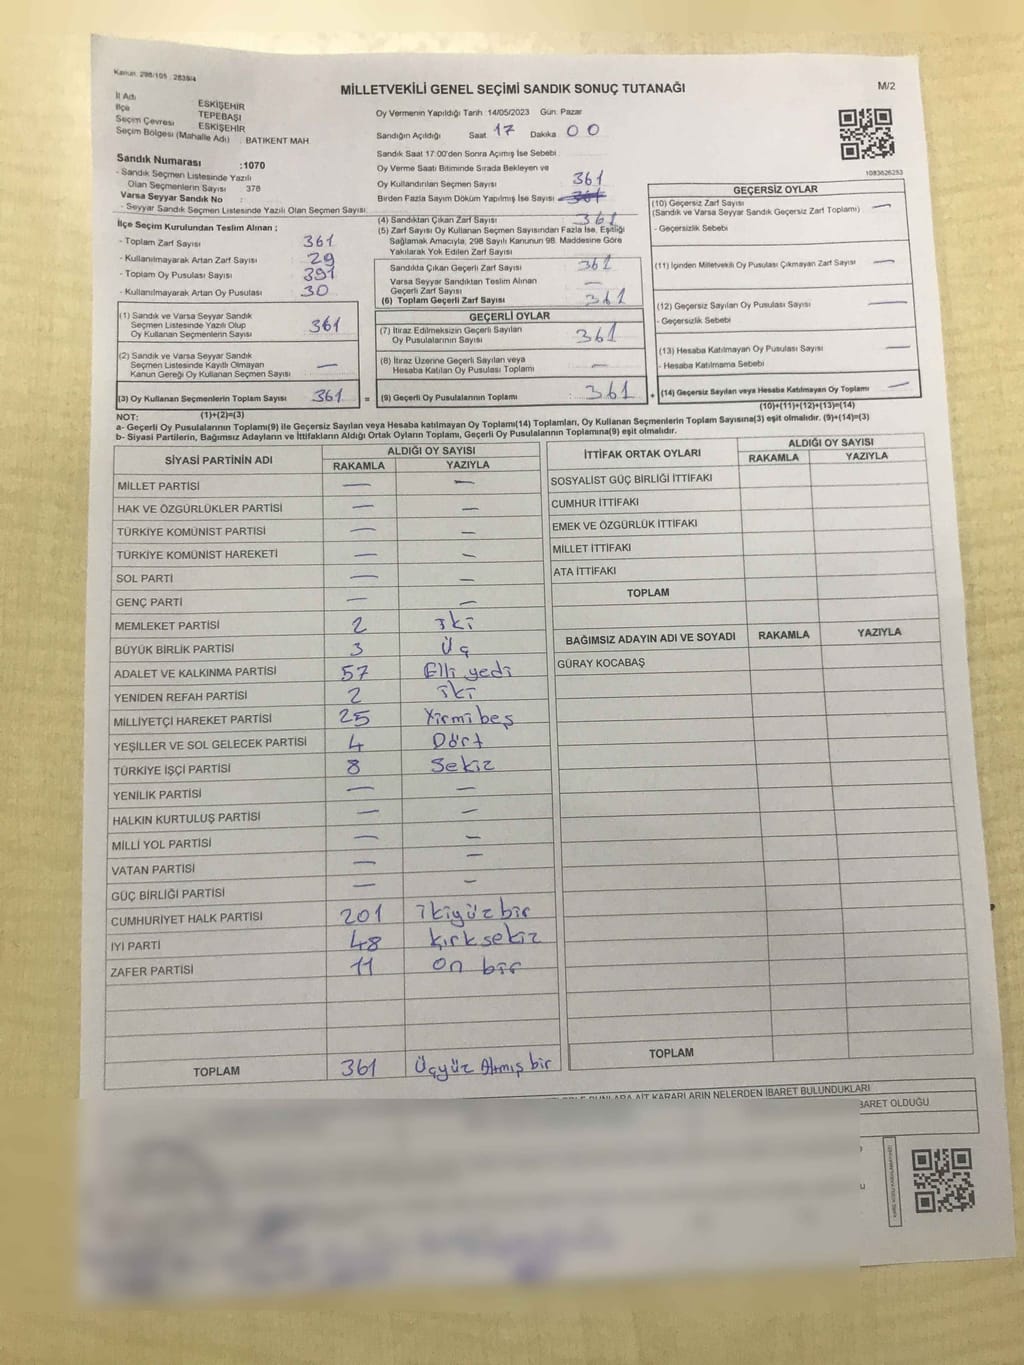 Kanun: 298/105 : 2839/4
MİLLETVEKİLİ GENEL SEÇİMİ SANDIK SONUÇ TUTANAĞI
M/2
İl Adı ESKİŞEHİR
İlçe TEPEBAŞI
Seçim Çevresi ESKİŞEHİR
Seçim Bölgesi (Mahalle Adı) : BATIKENT MAH
Sandık Numarası :1070
- Sandık Seçmen Listesinde Yazılı
Olan Seçmenlerin Sayısı 378
Varsa Seyyar Sandık No :
- Seyyar Sandık Seçmen Listesinde Yazılı Olan Seçmen Sayısı:
Oy Vermenin Yapıldığı Tarih: 14/05/2023 Gün: Pazar
Sandığın Açıldığı Saat 17 Dakika 00
Sandık Saat 17:00'den Sonra Açılmış İse Sebebi
Oy Verme Saati Bitiminde Sırada Bekleyen ve
Oy Kullandırılan Seçmen Sayısı 361
Birden Fazla Sayım Döküm Yapılmış İse Sayısı 361
1083626253
İlçe Seçim Kurulundan Teslim Alınan ;
- Toplam Zarf Sayısı 361
- Kullanılmayarak Artan Zarf Sayısı 29
- Toplam Oy Pusulası Sayısı 391
- Kullanılmayarak Artan Oy Pusulası 30
(1) Sandık ve Varsa Seyyar Sandık
Seçmen Listesinde Yazılı Olup
Oy Kullanan Seçmenlerin Sayısı 361
(2) Sandık ve Varsa Seyyar Sandık
Seçmen Listesinde Kayıtlı Olmayan
Kanun Gereği Oy Kullanan Seçmen Sayısı —
(3) Oy Kullanan Seçmenlerin Toplam Sayısı 361
(4) Sandıktan Çıkan Zarf Sayısı 361
(5) Zarf Sayısı Oy Kullanan Seçmen Sayısından Fazla İse, Eşitliği
Sağlamak Amacıyla, 298 Sayılı Kanunun 98. Maddesine Göre
Yakılarak Yok Edilen Zarf Sayısı
Sandıkta Çıkan Geçerli Zarf Sayısı : 361
Varsa Seyyar Sandıktan Teslim Alınan
Geçerli Zarf Sayısı : —
(6) Toplam Geçerli Zarf Sayısı : 361
GEÇERLİ OYLAR
(7) İtiraz Edilmeksizin Geçerli Sayılan
Oy Pusulalarının Sayısı : 361
(8) İtiraz Üzerine Geçerli Sayılan veya
Hesaba Katılan Oy Pusulası Toplamı : —
= (9) Geçerli Oy Pusulalarının Toplamı : 361
GEÇERSİZ OYLAR
(10) Geçersiz Zarf Sayısı —
(Sandık ve Varsa Seyyar Sandık Geçersiz Zarf Toplamı)
- Geçersizlik Sebebi
(11) İçinden Milletvekili Oy Pusulası Çıkmayan Zarf Sayısı —
(12) Geçersiz Sayılan Oy Pusulası Sayısı —
- Geçersizlik Sebebi
(13) Hesaba Katılmayan Oy Pusulası Sayısı —
- Hesaba Katılmama Sebebi
+ (14) Geçersiz Sayılan veya Hesaba Katılmayan Oy Toplamı —
NOT: (1)+(2)=(3)
(10)+(11)+(12)+(13)=(14)
a- Geçerli Oy Pusulalarının Toplamı(9) ile Geçersiz Sayılan veya Hesaba katılmayan Oy Toplamı(14) Toplamları, Oy Kullanan Seçmenlerin Toplam Sayısına(3) eşit olmalıdır. (9)+(14)=(3)
b- Siyasi Partilerin, Bağımsız Adayların ve İttifakların Aldığı Oyların Toplamı, Geçerli Oy Pusulalarının Toplamına(9) eşit olmalıdır.
SİYASİ PARTİNİN ADI ALDIĞI OY SAYISI
RAKAMLA YAZIYLA
MİLLET PARTİSİ — —
HAK VE ÖZGÜRLÜKLER PARTİSİ — —
TÜRKİYE KOMÜNİST PARTİSİ — —
TÜRKİYE KOMÜNİST HAREKETİ — —
SOL PARTİ — —
GENÇ PARTİ — —
MEMLEKET PARTİSİ 2 iki
BÜYÜK BİRLİK PARTİSİ 3 Üç
ADALET VE KALKINMA PARTİSİ 57 Elli yedi
YENİDEN REFAH PARTİSİ 2 iki
MİLLİYETÇİ HAREKET PARTİSİ 25 Yirmi beş
YEŞİLLER VE SOL GELECEK PARTİSİ 4 Dört
TÜRKİYE İŞÇİ PARTİSİ 8 Sekiz
YENİLİK PARTİSİ — —
HALKIN KURTULUŞ PARTİSİ — —
MİLLİ YOL PARTİSİ — —
VATAN PARTİSİ — —
GÜÇ BİRLİĞİ PARTİSİ — —
CUMHURİYET HALK PARTİSİ 201 ikiyüz bir
İYİ PARTİ 48 kırk sekiz
ZAFER PARTİSİ 11 on bir
TOPLAM 361 Üçyüz Altmış bir
İTTİFAK ORTAK OYLARI ALDIĞI OY SAYISI
RAKAMLA YAZIYLA
SOSYALİST GÜÇ BİRLİĞİ İTTİFAKI
CUMHUR İTTİFAKI
EMEK VE ÖZGÜRLÜK İTTİFAKI
MİLLET İTTİFAKI
ATA İTTİFAKI
TOPLAM
BAĞIMSIZ ADAYIN ADI VE SOYADI RAKAMLA YAZIYLA
GÜRAY KOCABAŞ
TOPLAM
AİT KARARLARIN NELERDEN İBARET BULUNDUKLARI
BARET OLDUĞU